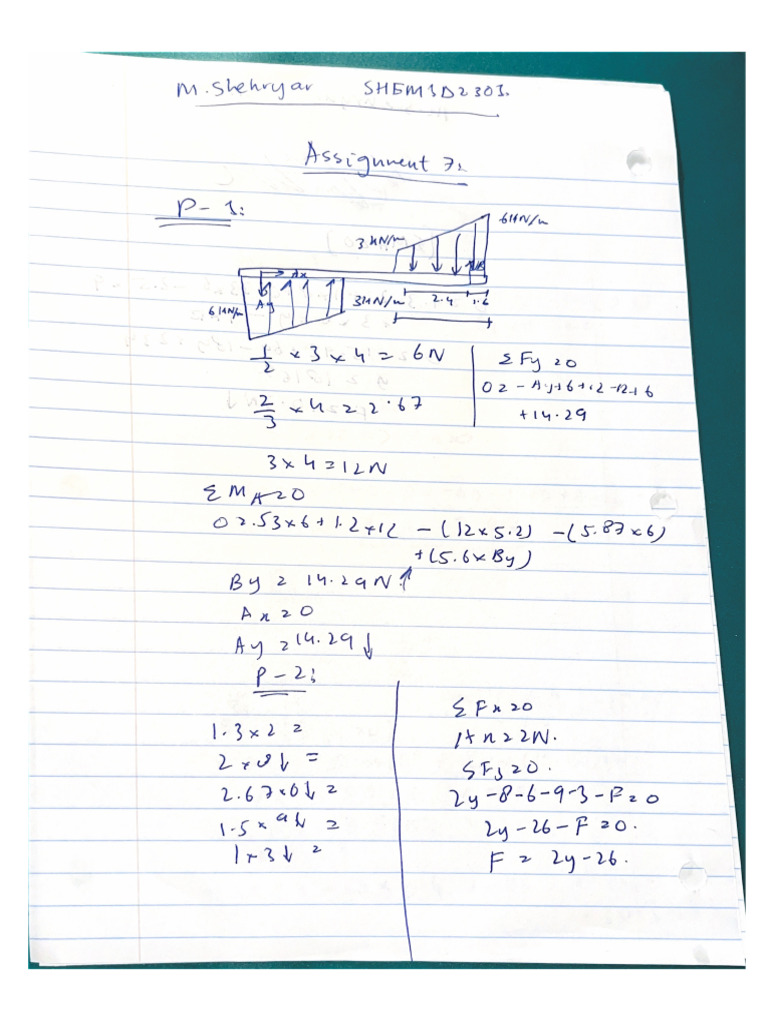 M. Shehryar SHEM1D2301.
Assignment 7.
P-1:
6kN/m
3kN/m
Ax
Ay
6kN/m
3kN/m 2.4 1.6
1/2 × 3 × 4 = 6N
2/3 × 4 = 2.67
3 × 4 = 12N
ΣFy = 0
0 = -Ay+6+12-12-6
+14.29
ΣMA = 0
0 = 2.53×6 + 1.2×12 - (12×5.2) - (5.87×6)
+ (5.6×By)
By = 14.29N↑
Ax = 0
Ay = 14.29↓
P-2:
1.3×2 =
2×8↓ =
2.67×6↓ =
1.5×9↓ =
1×3↓ =
ΣFx = 0
Ax = 2N.
ΣFy = 0.
2y-8-6-9-3-F = 0
2y-26-F = 0.
F = 2y-26.